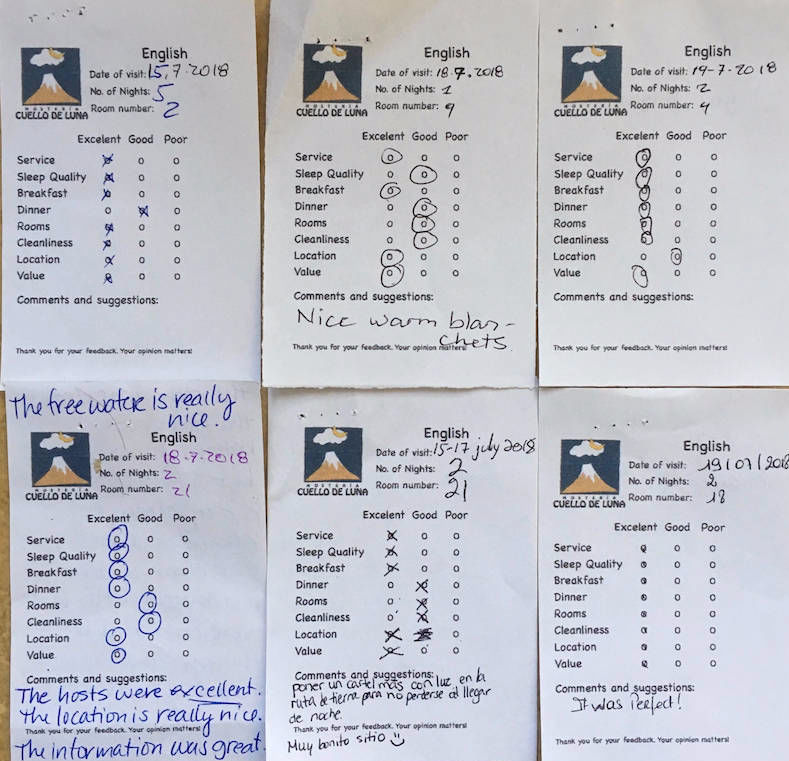 English
Date of visit: 15.7.2018
No. of Nights: 5
Room number: 2
HOSTERÍA
CUELLO DE LUNA
Excelent Good Poor
Service
Sleep Quality
Breakfast
Dinner
Rooms
Cleanliness
Location
Value
Comments and suggestions:
Thank you for your feedback. Your opinion matters!
English
Date of visit: 18.7.2018
No. of Nights: 1
Room number: 9
HOSTERÍA
CUELLO DE LUNA
Excelent Good Poor
Service
Sleep Quality
Breakfast
Dinner
Rooms
Cleanliness
Location
Value
Comments and suggestions:
Nice warm blan-
chets
Thank you for your feedback. Your opinion matters!
English
Date of visit: 19-7-2018
No. of Nights: 2
Room number: 4
HOSTERÍA
CUELLO DE LUNA
Excelent Good Poor
Service
Sleep Quality
Breakfast
Dinner
Rooms
Cleanliness
Location
Value
Comments and suggestions:
Thank you for your feedback. Your opinion matters!
The free water is really
nice.
English
Date of visit: 18.7.2018
No. of Nights: 2
Room number: 21
HOSTERÍA
CUELLO DE LUNA
Excelent Good Poor
Service
Sleep Quality
Breakfast
Dinner
Rooms
Cleanliness
Location
Value
Comments and suggestions:
The hosts were excellent.
The location is really nice.
Thank you for your feedback. Your opinion matters!
The information was great.
English
Date of visit: 15-17 july 2018
No. of Nights: 2
Room number: 21
HOSTERÍA
CUELLO DE LUNA
Excelent Good Poor
Service
Sleep Quality
Breakfast
Dinner
Rooms
Cleanliness
Location
Value
Comments and suggestions:
poner un cartel más con luz en la
ruta de tierra para no perderse al llegar
de noche.
Thank you for your feedback. Your opinion matters!
Muy bonito sitio
English
Date of visit: 19/07/2018
No. of Nights: 2
Room number: 18
HOSTERÍA
CUELLO DE LUNA
Excelent Good Poor
Service
Sleep Quality
Breakfast
Dinner
Rooms
Cleanliness
Location
Value
Comments and suggestions:
It was Perfect!
Thank you for your feedback. Your opinion matters!